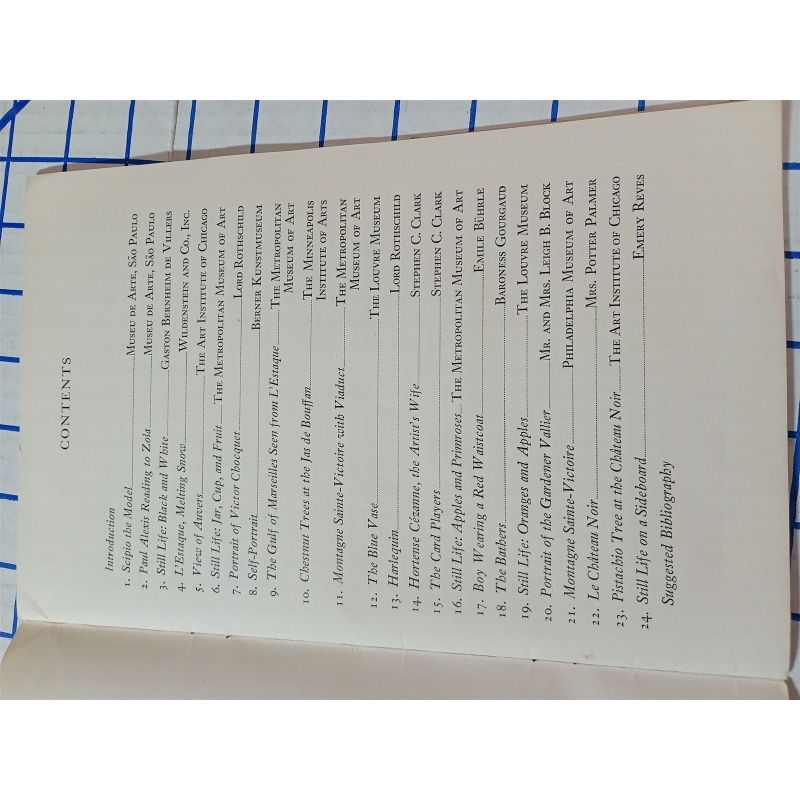 CONTENTS
Introduction
1. Scipio the Model MUSEU DE ARTE, SÃO PAULO
2. Paul Alexis Reading to Zola MUSEU DE ARTE, SÃO PAULO
3. Still Life: Black and White GASTON BERNHEIM DE VILLERS
4. L'Estaque, Melting Snow WILDENSTEIN AND CO., INC.
5. View of Auvers THE ART INSTITUTE OF CHICAGO
6. Still Life: Jar, Cup, and Fruit THE METROPOLITAN MUSEUM OF ART
7. Portrait of Victor Chocquet LORD ROTHSCHILD
8. Self-Portrait BERNER KUNSTMUSEUM
9. The Gulf of Marseilles Seen from L'Estaque THE METROPOLITAN
MUSEUM OF ART
10. Chestnut Trees at the Jas de Bouffan THE MINNEAPOLIS
INSTITUTE OF ARTS
11. Montagne Sainte-Victoire with Viaduct THE METROPOLITAN
MUSEUM OF ART
12. The Blue Vase THE LOUVRE MUSEUM
13. Harlequin LORD ROTHSCHILD
14. Hortense Cézanne, the Artist's Wife STEPHEN C. CLARK
15. The Card Players STEPHEN C. CLARK
16. Still Life: Apples and Primroses THE METROPOLITAN MUSEUM OF ART
17. Boy Wearing a Red Waistcoat EMILE BÜHRLE
18. The Bathers BARONESS GOURGAUD
19. Still Life: Oranges and Apples THE LOUVRE MUSEUM
20. Portrait of the Gardener Vallier MR. AND MRS. LEIGH B. BLOCK
21. Montagne Sainte-Victoire PHILADELPHIA MUSEUM OF ART
22. Le Château Noir MRS. POTTER PALMER
23. Pistachio Tree at the Château Noir THE ART INSTITUTE OF CHICAGO
24. Still Life on a Sideboard EMERY REVES
Suggested Bibliography